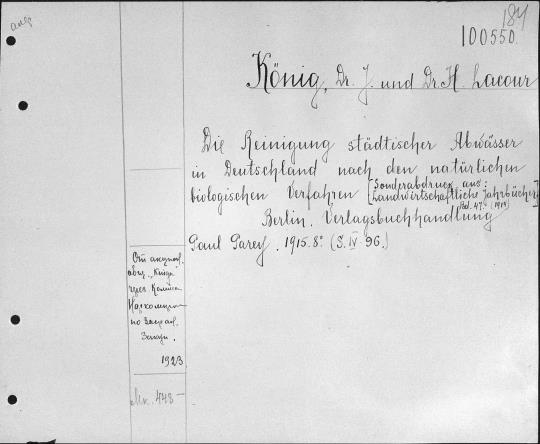 184
100550.
König, Dr. J. und Dr. H. Lacour
Die Reinigung städtischer Abwässer
in Deutschland nach den natürlichen
biologischen Verfahren [Sonderabdruck aus:
Landwirtschaftliche Jahrbücher
Bd. 47. (1914)]
Berlin. Verlagsbuchhandlung
Paul Parey. 1915. 8° (S. IV 96.)
От
"Книга"
через
по
1923
448-